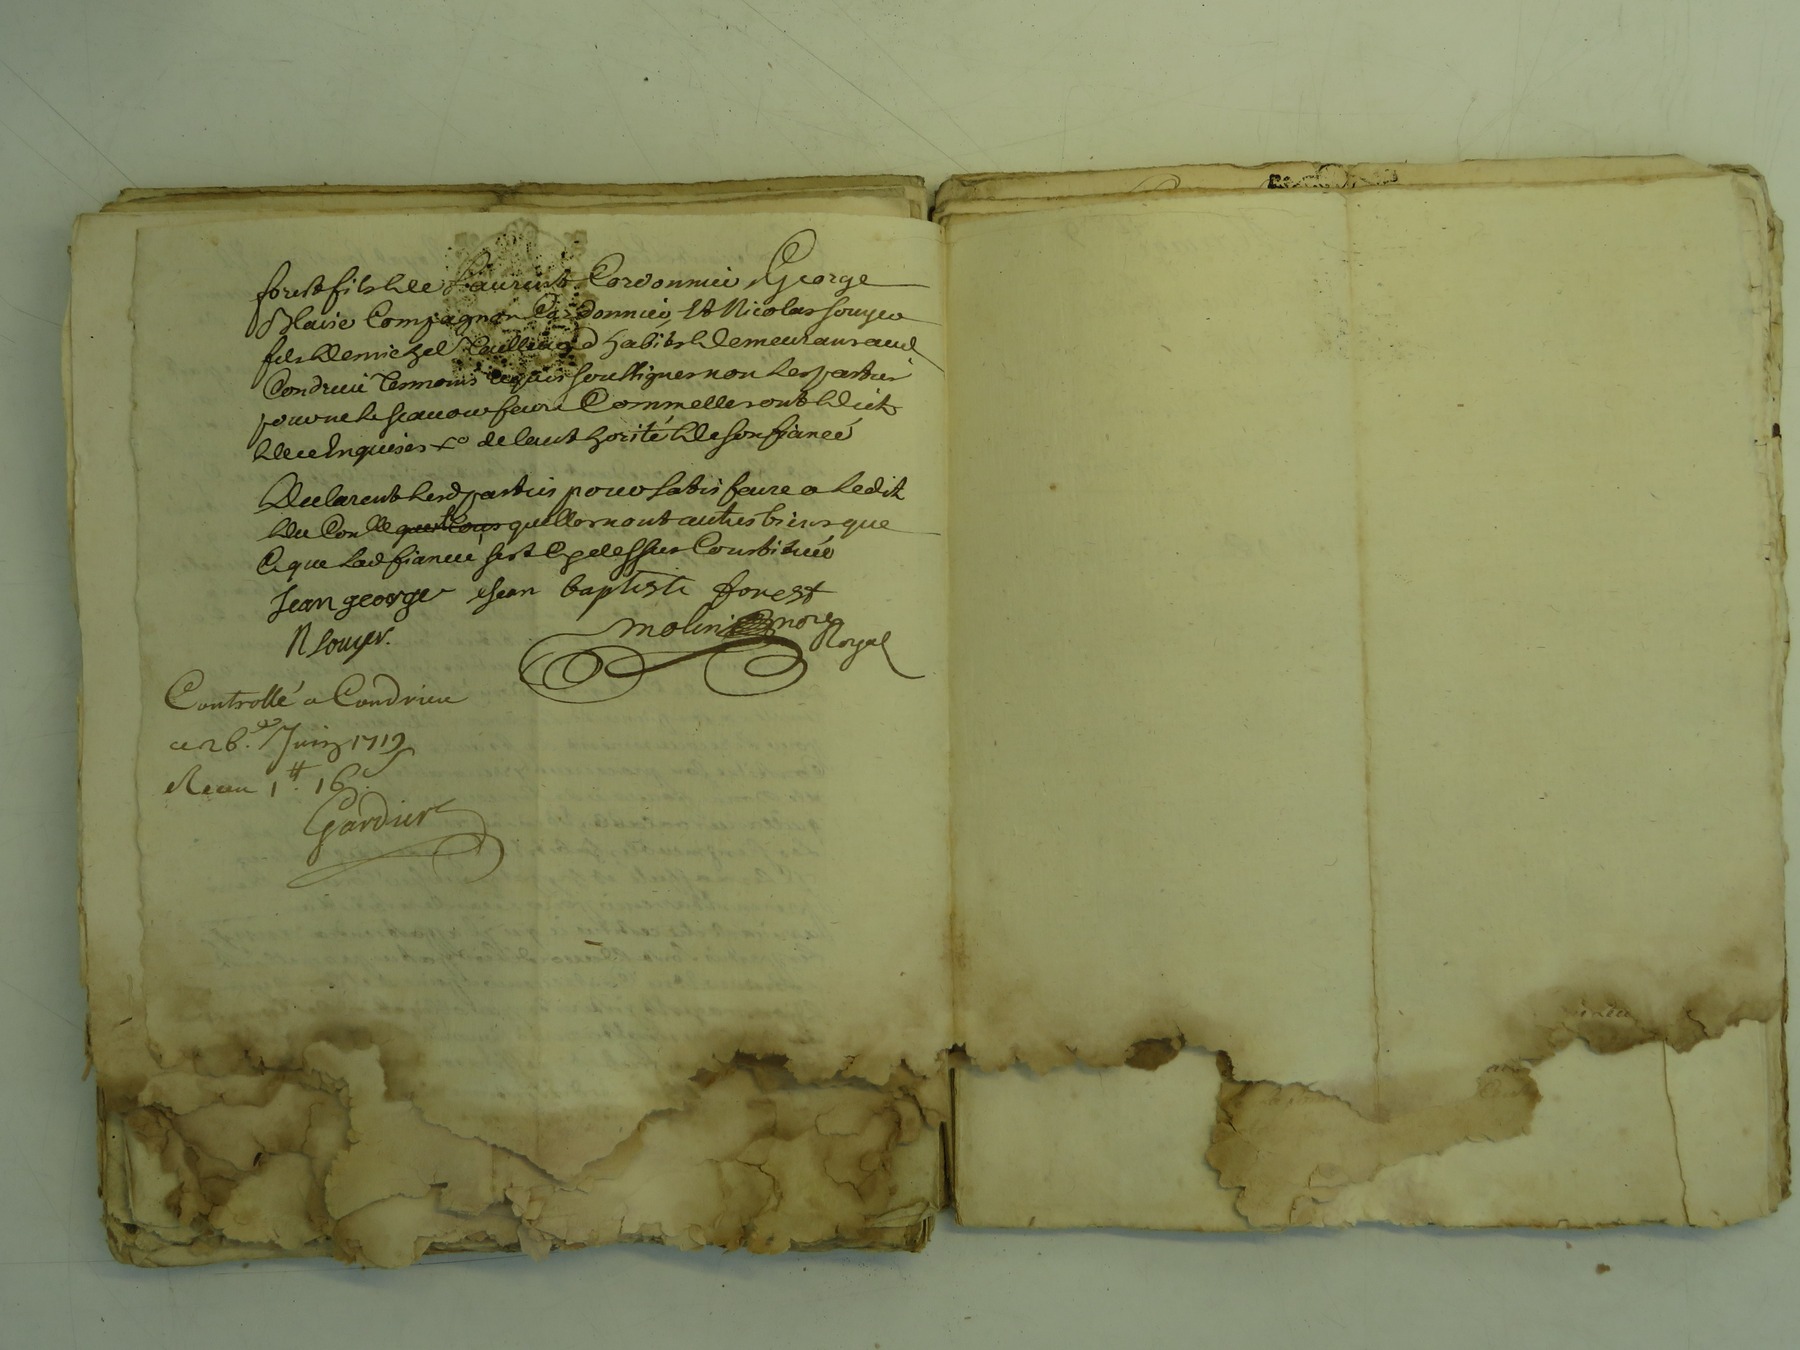 forest fils de Laurent Cordonnier George
Blaise Compagnon Cordonnier, et Nicolas souyer
fils de michel tailleur d habits demeurans aud
Condrieu tesmoins requis soussignes non les parties
pour ne le scauoir faire Comme elles ont dict
de ce Enquises de lauthorité de son fiancé
Declarent lesd parties pour satisfaire a ledit
du Conlle quelles nont autres biens que
Ce que lad fiancée sest Cy dessus Constituée
Jean george Jean baptiste forest
N Souyer. molin nore Royal
Controllé a Condrieu
ce 26.e Juin 1719
Receu 1.tt 16 s
Gardier